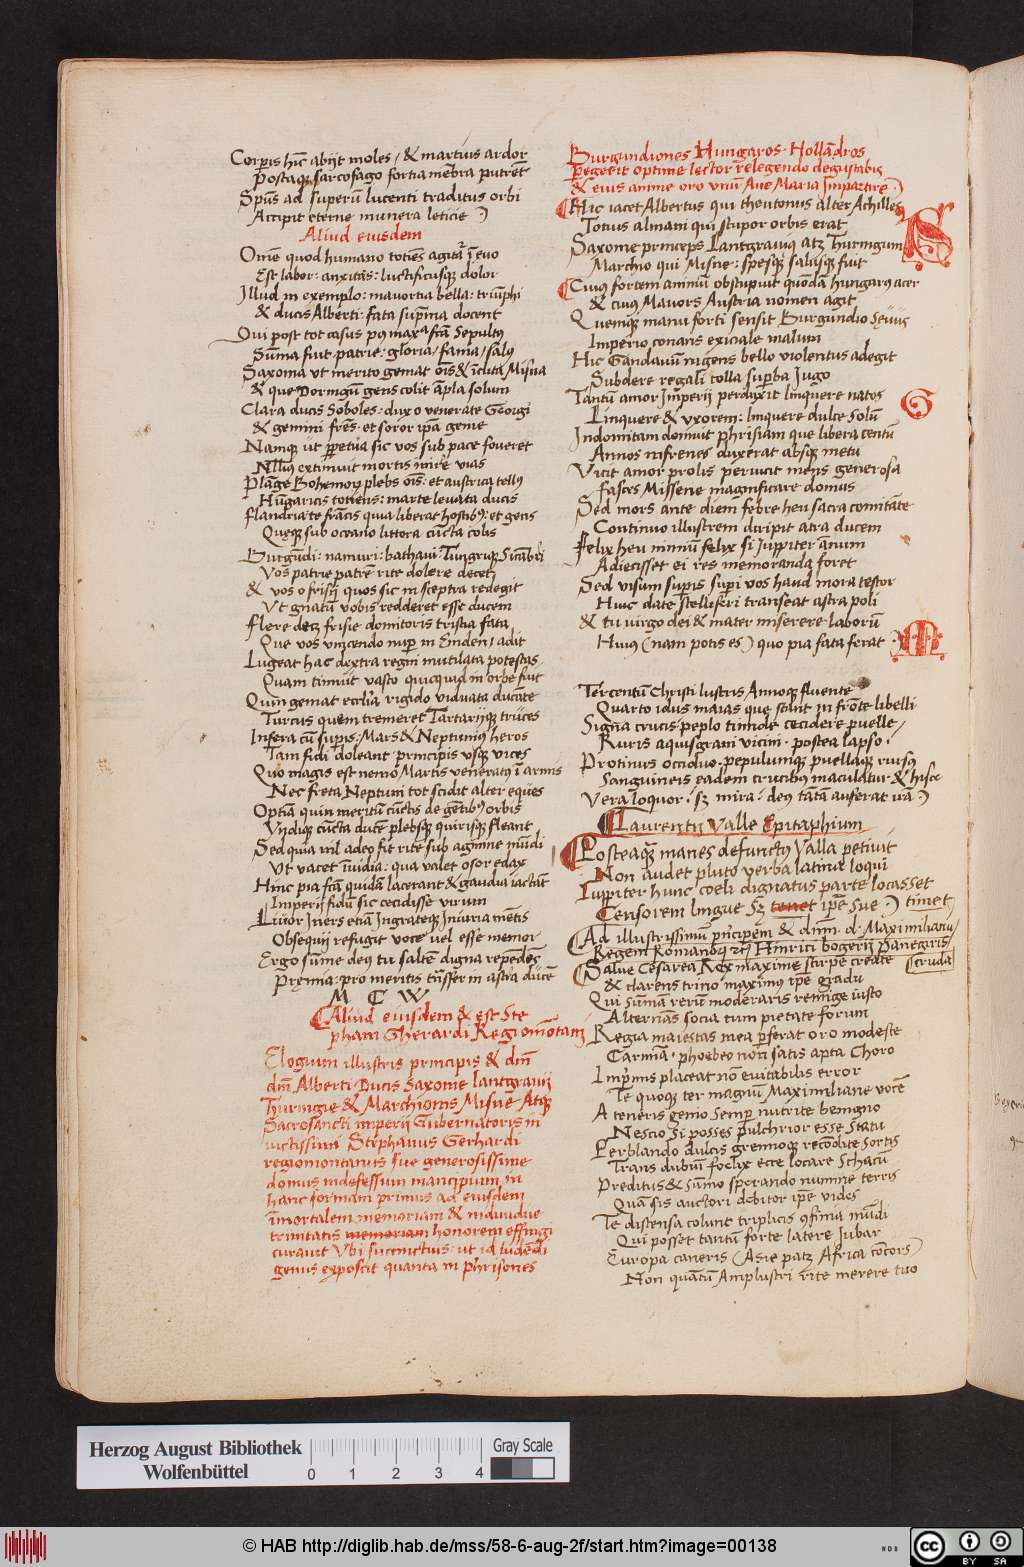 Corpis hic abijt moles / & martius ardor
Postaque sarcofago fortia mēbra putrēt
Spūs ad superū lucenti traditus orbi
Accipit eterne munera leticie
Aliud eiusdem
Omē quod humano totiēs agitat ī ęuo
Est labor: anxitas: luctificusque dolor
Illud in exemplo: mauortia bella: triūphi
& ducis Alberti: fata supina docent
Qui post tot casus
Sūma fuit patrie: gloria / fama / salus
Saxonia ut merito gemat oīs & īclita Misna
& que Doringū gens colit āpla solum
Clara ducis Soboles: dux o venerate Georgi
& gemini frēs: et soror ipā gemē
Namque ut ppetua sic vos sub pace foueret
Nullius extimuit mortis inire vias
Plāge Bohemorum plebs oīs: et austrica tellus
Hūgaricis totiens: marte leuata ducis
flandria te frācis qua liberat hostibus: et gens
Queque sub oceano littora cūcta colis
Burgūdi: namuri: bathaui: Tungrique Sicābri
Vos patrie patrē rite dolere decet
& vos o frisij quos sic in sceptra redegit
Ut gnatū vobis redderet esse ducem
flere decet frisie domitoris tristia fata
Que vos vincendo nup in Emden adit
Lugeat hac dextra regni mutilata potestas
Quam timuit vasto quicquid in orbe fuit
Quin gemat eccłia rigido viduata ducāte
Turcus quem tremeret Tartarijque truces
Infera cū supis: Mars & Neptunius heros
Tam fidi doleant principis usque vices
Quo magis est nemo Martis veneratus ī armis
Nec freta Neptuni tot scidit alter eques
Optiā quin meritū cūctis de gētibus orbis
Vndique cūcta ducē plebsque quirisque fleant
Sed quia nil adeo fit rite sub agmine mūdi
Ut vacet īuidia: qua valet osor edax
Hinc pia fcā quidā lacerant & gaudia iactāt
Imperij fidū sic cecidisse virum
Liuor Iners etiā Ingrateque Iniuria mētis
Obsequij refugit voce uel esse memor
Ergo sūme deus tu saltē digna rependēs
Premia: pro meritis trāsfer in astra ducē
M C W
Aliud eiusdem & est Ste
phani Gherardi Regiomōtani
Elogium illustris principis & dnī
dnī Alberti Ducis Saxonie lantgrauij
Thuringie & Marchionis Misnē Atque
Sacrosancti imperij Gubernatoris in
uictissimi Stephanus Gerhardi
regiomontanus sue generosissime
domus indefessum mancipium in
hanc formam primus ad eiusdem
īmortalem memoriam & indiuidue
trinitatis memoriam honorem effingi
curauit Vbi succinctius ut id ludēdi
genus exposcit quanta in phrisones
Burgundiones Hungaros Hollādros
peegerit optime lector relegendo degustabis
& eius anime oro vnū Aue Maria Impartire
Hic iacet Albertus qui theutonus alter Achilles
Totius almani qui stupor orbis erat
Saxonie princeps Lantgrauius atque Thuringum
Marchio qui Misne: spesque salusque fuit
Cuius fortem animū obstupuit quōdā hungarus acer
& cuius Mauors Austria nomen agit
Quemque manu forti sensit Burgundio sęuus
Imperio conans exiciale malum
Hic Gandauū nigens bello violentus adegit
Subdere regali colla supba Jugo
Tantū amor Imperij perduxit linquere natos
Linquere & vxorem: linquere dulce solū
Indomitam domuit phrisiam que libera centū
Annos infrenes duxerat absque metu
Vicit amor prolis peruicit mens generosa
fasces Missene magnificare domus
Sed mors ante diem febre heu sacra comitāte
Continuo illustrem diripit atra ducem
felix heu nimiū felix si Juppiter ānum
Adiecisset ei res memoranda foret
Sed visum supis supi vos haud mora testor
Huic date stelliferi transeat astra poli
& tu virgo dei & mater miserere laborū
Huius (nam potis es) quo pia fata ferat
Tercentū Christi lustris Annoque fluente
Quarto idus maias que stant in frōte libelli
Signa crucis peplo timide cecidere puelle /
Ruris aquisgrani vicini postea lapso
Protinus occiduo pepulumque puellaque rursus
Sanguineis eadem crucibus maculatur & hisce
Vera loquor: sz mira: deus tātā auferat irā
Laurentij Valle Epitaphium
Posteaquam manes defunctus Valla petiuit
Non audet pluto verba latina loqui
Iuppiter hunc coeli dignatus parte locasset
Censorem lingue sz tenet ipē sue timet
Ad illustrissimum principem & dnm d: Maximilianū
Regem Romanorum Hinrici bogerij Panegiris
Salue Cesarea Rex maxime stirpe create cruda
& clarens trino maximus ipē gradu
Qui sūmam rerū moderaris remige iusto
Alternās socia cum pietate forum
Regia maiestas mea pferat oro modeste
Carmīa: phoebeo non satis apta Choro
Inprimis placeat nō euitabilis error
Te quoque ter magnū Maximiliane vocē
A teneris genio semp nutrite benigno
Nescio si posses pulchrior esse statu
Perblando dulcis gremioque recōdite sortis
Trans dubiū foelix ecce locare Schacū
Preditus & sūmo sperando numine terris
Quā sis auctori debitor ipē vides
Te distensa colunt triplicis 9finia mūdi
Qui posset tantū forte latere Jubar
Europa caneris (Asie patz Africa cōcors)
Non quātū Amplustri rite merere tuo
Herzog August Bibliothek
Wolfenbüttel
0 1 2 3 4
Gray Scale
© HAB http://diglib.hab.de/mss/58-6-aug-2f/start.htm?image=00138
WDB
cc BY SA